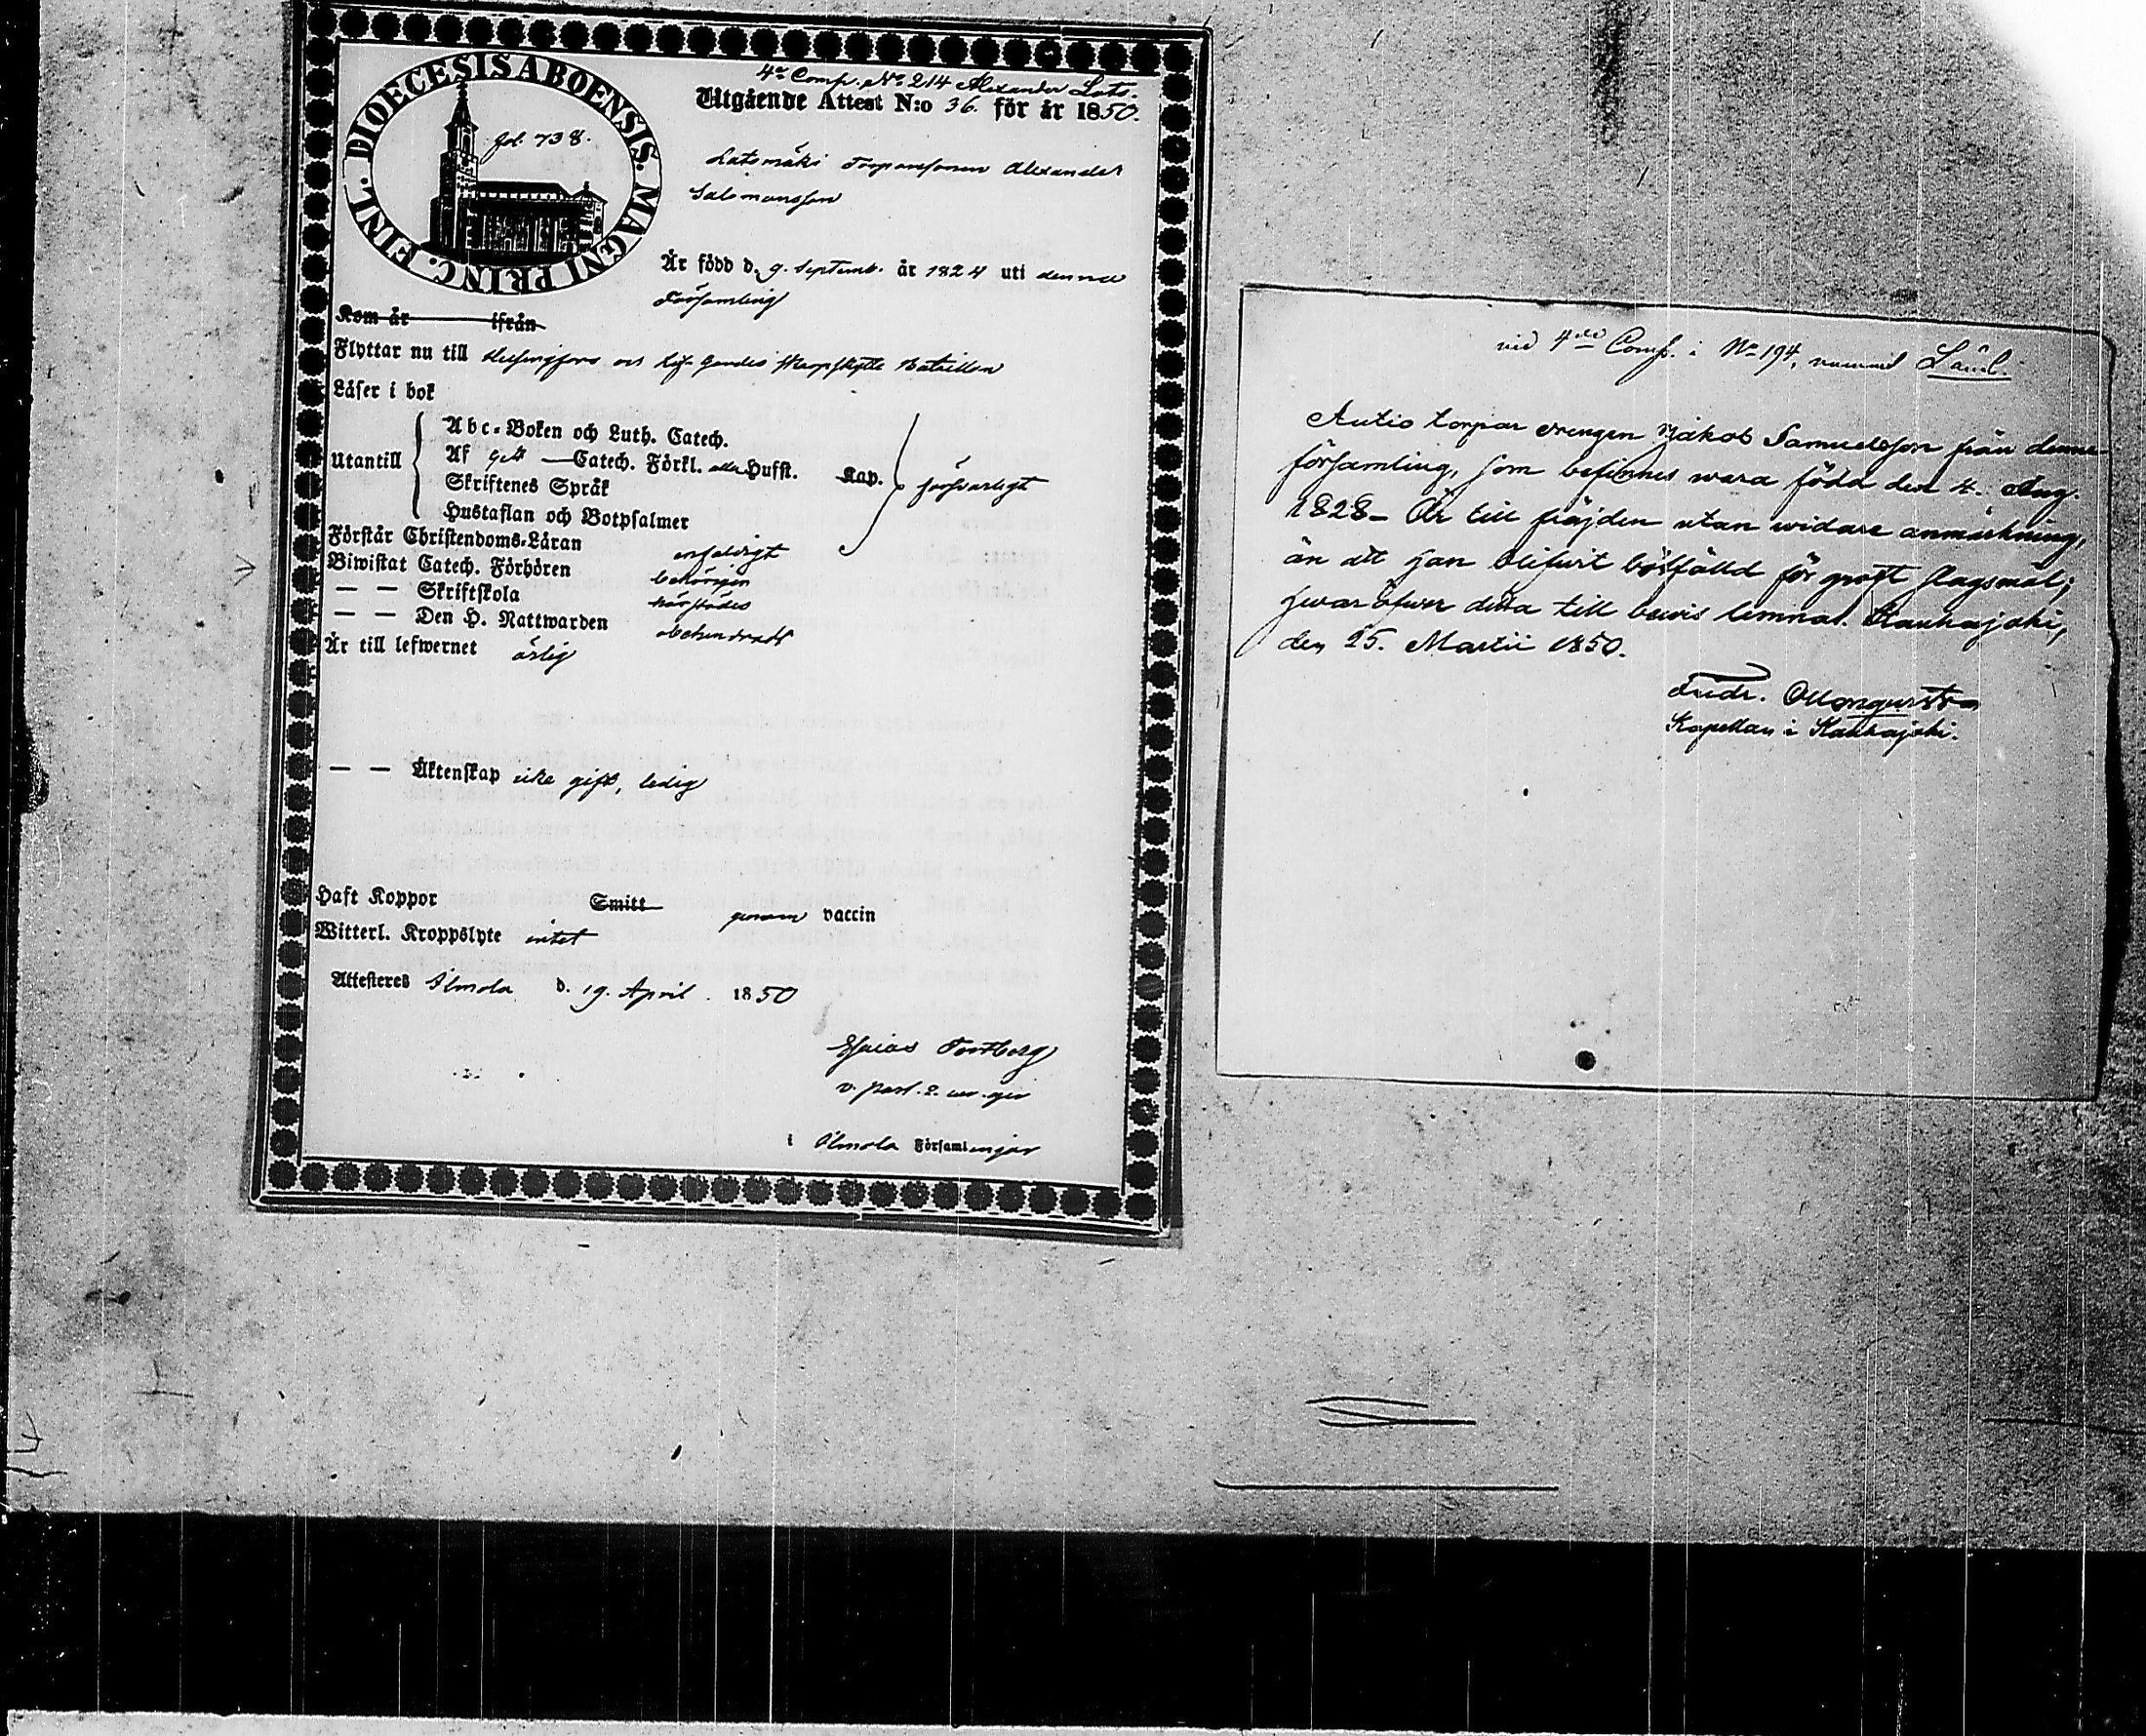 DIOECESIS ABOENSIS. MAGNI PRINC. FINL.
fol. 738.
4e Comp. No 214 Alexander Lats.
Utgående Attest N:o 36. för år 1850.
Latomäki Torparesonen Alexander
Salomonsson
Är född d. 9. Septemb. år 1824 uti denna
Församling
Kom år ifrån
Flyttar nu till Helsingfors och Lif-Gardes Skarpskytte Bataillon
Läser i bok
Abc-Boken och Luth. Catech.
Utantill
Af Catech. Förkl. eller Hufst. Kap.
Skriftenes Språk
försvarligt
Hustaflan och Botpsalmer
Förstår Christendoms-Läran enfaldigt
Biwistat Catech. Förhören behörigen
— — Skriftskola härstädes
— — Den H. Nattwarden obehindradt
Är till lefwernet ärlig
— — Äktenskap icke gift, ledig
Haft Koppor Smitt genom vaccin
Witterl. Kroppslyte intet
Attesteras Ilmola d. 19. April. 1850
Esaias
v. past.
i Ilmola Församlingar
vid 4de Comp. i No 194, nummel
Autio torpar drengen Jakob Samuelsson från denna
församling, som befinnes wara född den 4. Aug.
1828- Är till fräjden utan widare anmärkning,
än att han blifwit bötfälld för groft slagsmål;
hwaröfwer detta till bewis lemnas. Kauhajoki,
den 25. Martii 1850.
Fredr.
Kapellan i Kauhajoki.